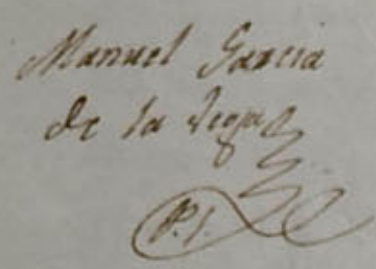 Manuel Garcia
de la Vega
P. I.